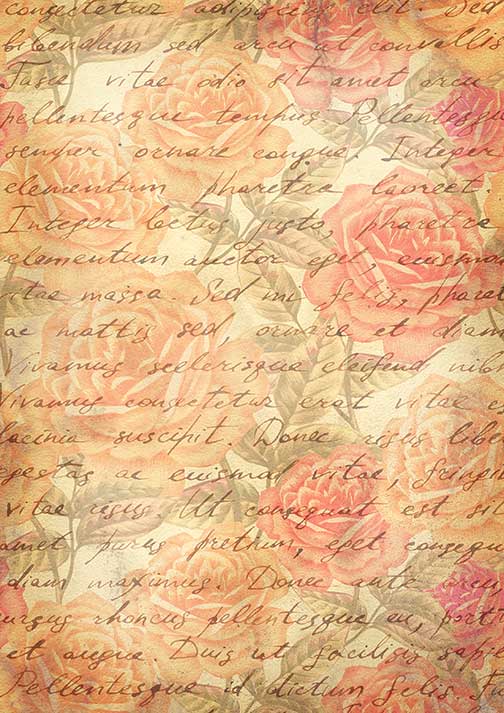 consectetur adipiscing elit. Sed
bibendum sed arcu ut convallis
Fusce vitae odio sit amet arcu
pellentesque tempus. Pellentesqu
semper ornare congue. Integer
elementum pharetra laoreet.
Integer lectus justo, pharetra
elementum auctor eget, euismod
vitae massa. Sed mi felis, pharet
ac mattis sed, ornare et diam
Vivamus scelerisque eleifend nibh
Vivamus consectetur erat vitae
lacinia suscipit. Donec risus libe
egestas ac euismod vitae, fringil
vitae risus. Ut consequat est si
amet purus pretium, eget consequ
diam maximus. Donec ante arcu
ursus rhoncus pellentesque eu, port
et augue. Duis ut facilisis sapie
Pellentesque id dictum felis. Fu